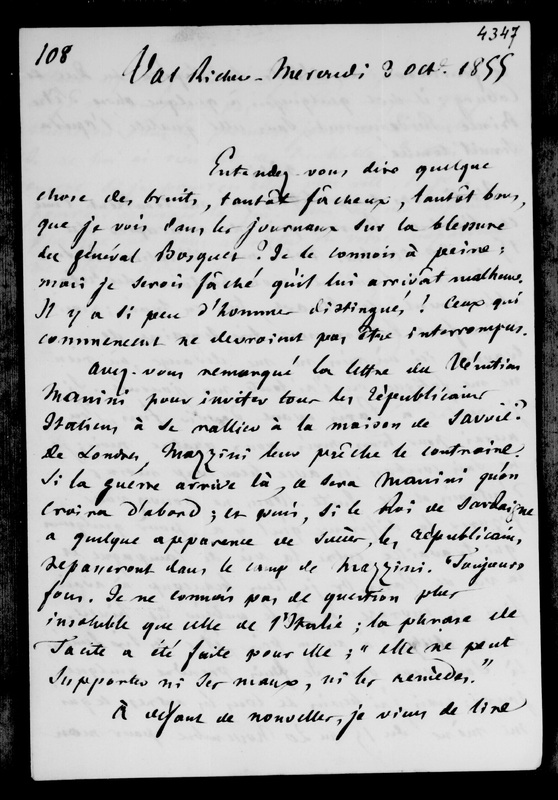 108
4347
Val Richer - Mercredi 3 Oct. 1855
Entendez-vous dire quelque
chose des bruits, tantôt fâcheux, tantôt bons,
que je vois dans les journaux sur la blessure
du général Bosquet ? Je le connois à peine ;
mais je serois fâché qu'il lui arrivât malheur.
Il y a si peu d'hommes distingués ! Ceux qui
commencent ne devroient pas être interrompus.
Avez-vous remarqué la lettre du Vénitien
Manini pour inviter tous les républicains
Italiens à se rallier à la maison de Savoie ?
de Londres, Mazzini leur prêche le contraire.
Si la guerre arrive là, ce sera Manini qu'on
croira d'abord ; et puis, si le Roi de Sardaigne
a quelque apparence de succès, les républicains
repasseront dans le camp de Mazzini. Toujours
fous. Je ne connois pas de question plus
insoluble que celle de l'Italie ; la phrase de
Tacite a été faite pour elle ; " elle ne peut
supporter ni ses maux, ni les remèdes."
A défaut de nouvelles, je viens de lire